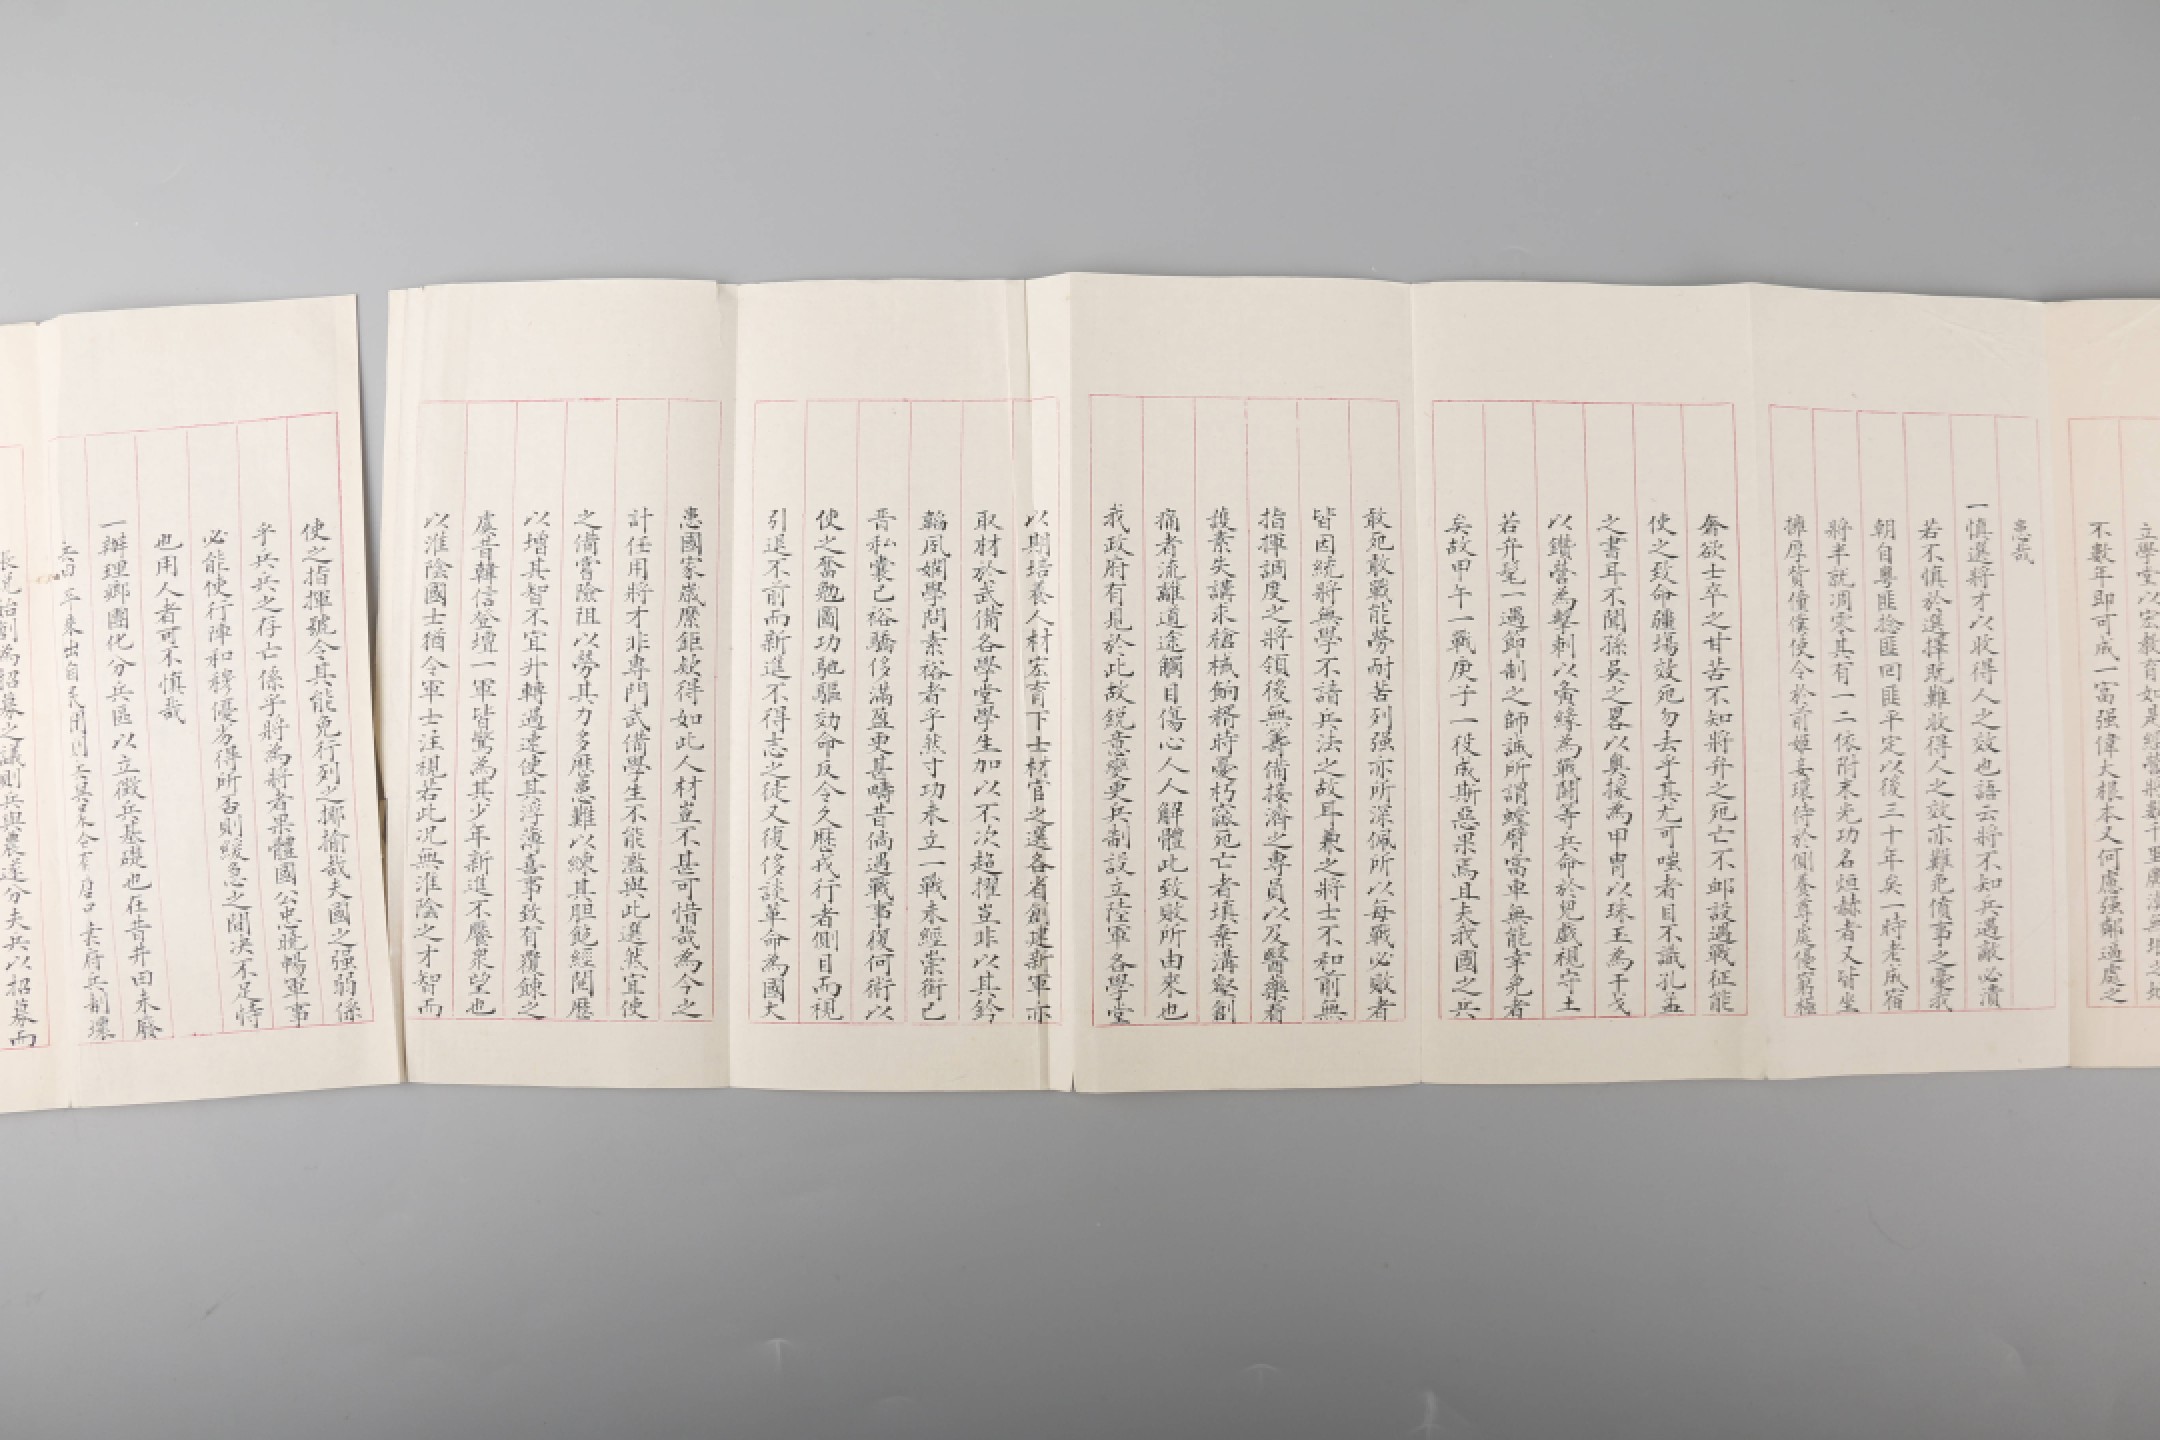 立學堂以宏教育如是經營將數千里廣漠無垠之地
不數年即可成一富强偉大根本又何慮强鄰逼處之
患哉
一慎選將才以收得人之效也語云將不知兵遇敵必潰
若不慎於選擇既難收得人之效亦難免僨事之憂我
朝自粵匪捻匪回匪平定以後三十年矣一時老成宿
將半就凋零其有一二依附末光功名烜赫者又皆坐
擁厚貲僮僕使令於前姬妾環侍於側養尊處優窮極
奢欲士卒之甘苦不知將弁之死亡不卹設遇戰征能
使之致命疆場效死勿去乎其尤可嗤者目不識孔孟
之書耳不聞孫吳之畧以奥援為甲胄以珠玉為干戈
以鑽營為擊刺以夤緣為戰鬭等兵命於兒戲視守土
若弁髦一遇節制之師誠所謂螳臂當車無能幸免者
矣故甲午一戰庚子一役成斯惡果焉且夫我國之兵
敢死敢戰能勞耐苦列强亦所深佩所以每戰必敗者
皆因統將無學不諳兵法之故耳兼之將士不和前無
指揮調度之將領後無籌備接濟之專員以及醫藥看
護素失講求槍械餉糈時憂朽窳死亡者填棄溝壑創
痛者流離道途觸目傷心人人解體此致敗所由來也
我政府有見於此故銳意變更兵制設立陸軍各學堂
以期培養人材宏育下士材官之選各省創建新軍亦
取材於武備各學堂學生加以不次超擢豈非以其鈐
韜夙嫻學問素裕者乎然寸功未立一戰未經崇銜已
晋私囊已裕驕侈滿盈更甚疇昔倘遇戰事復何術以
使之奮勉圖功馳驅効命反令久歷戎行者側目而視
引退不前而新進不得志之徒又復侈談革命為國大
患國家歲縻鉅欵得如此人材豈不甚可惜哉為今之
計任用將才非專門武備學生不能濫與此選然宜使
之備嘗險阻以勞其力多歷患難以練其胆飽經閱歷
以增其智不宜升轉過速使其浮薄喜事致有覆餗之
虞昔韓信登壇一軍皆驚為其少年新進不饜衆望也
以淮陰國士猶令軍士注視若此况無淮陰之才智而
使之指揮號令其能免行列之揶揄哉夫國之强弱係
乎兵兵之存亡係乎將為將者果體國公忠曉暢軍事
必能使行陣和穆優劣得所否則緩急之間决不足恃
也用人者可不慎哉
一辦理鄉團化分兵區以立徵兵基礎也在昔井田未廢
出自民間則 府兵制壞
長兒治創為招募之議則兵與農遂分夫兵以招募而